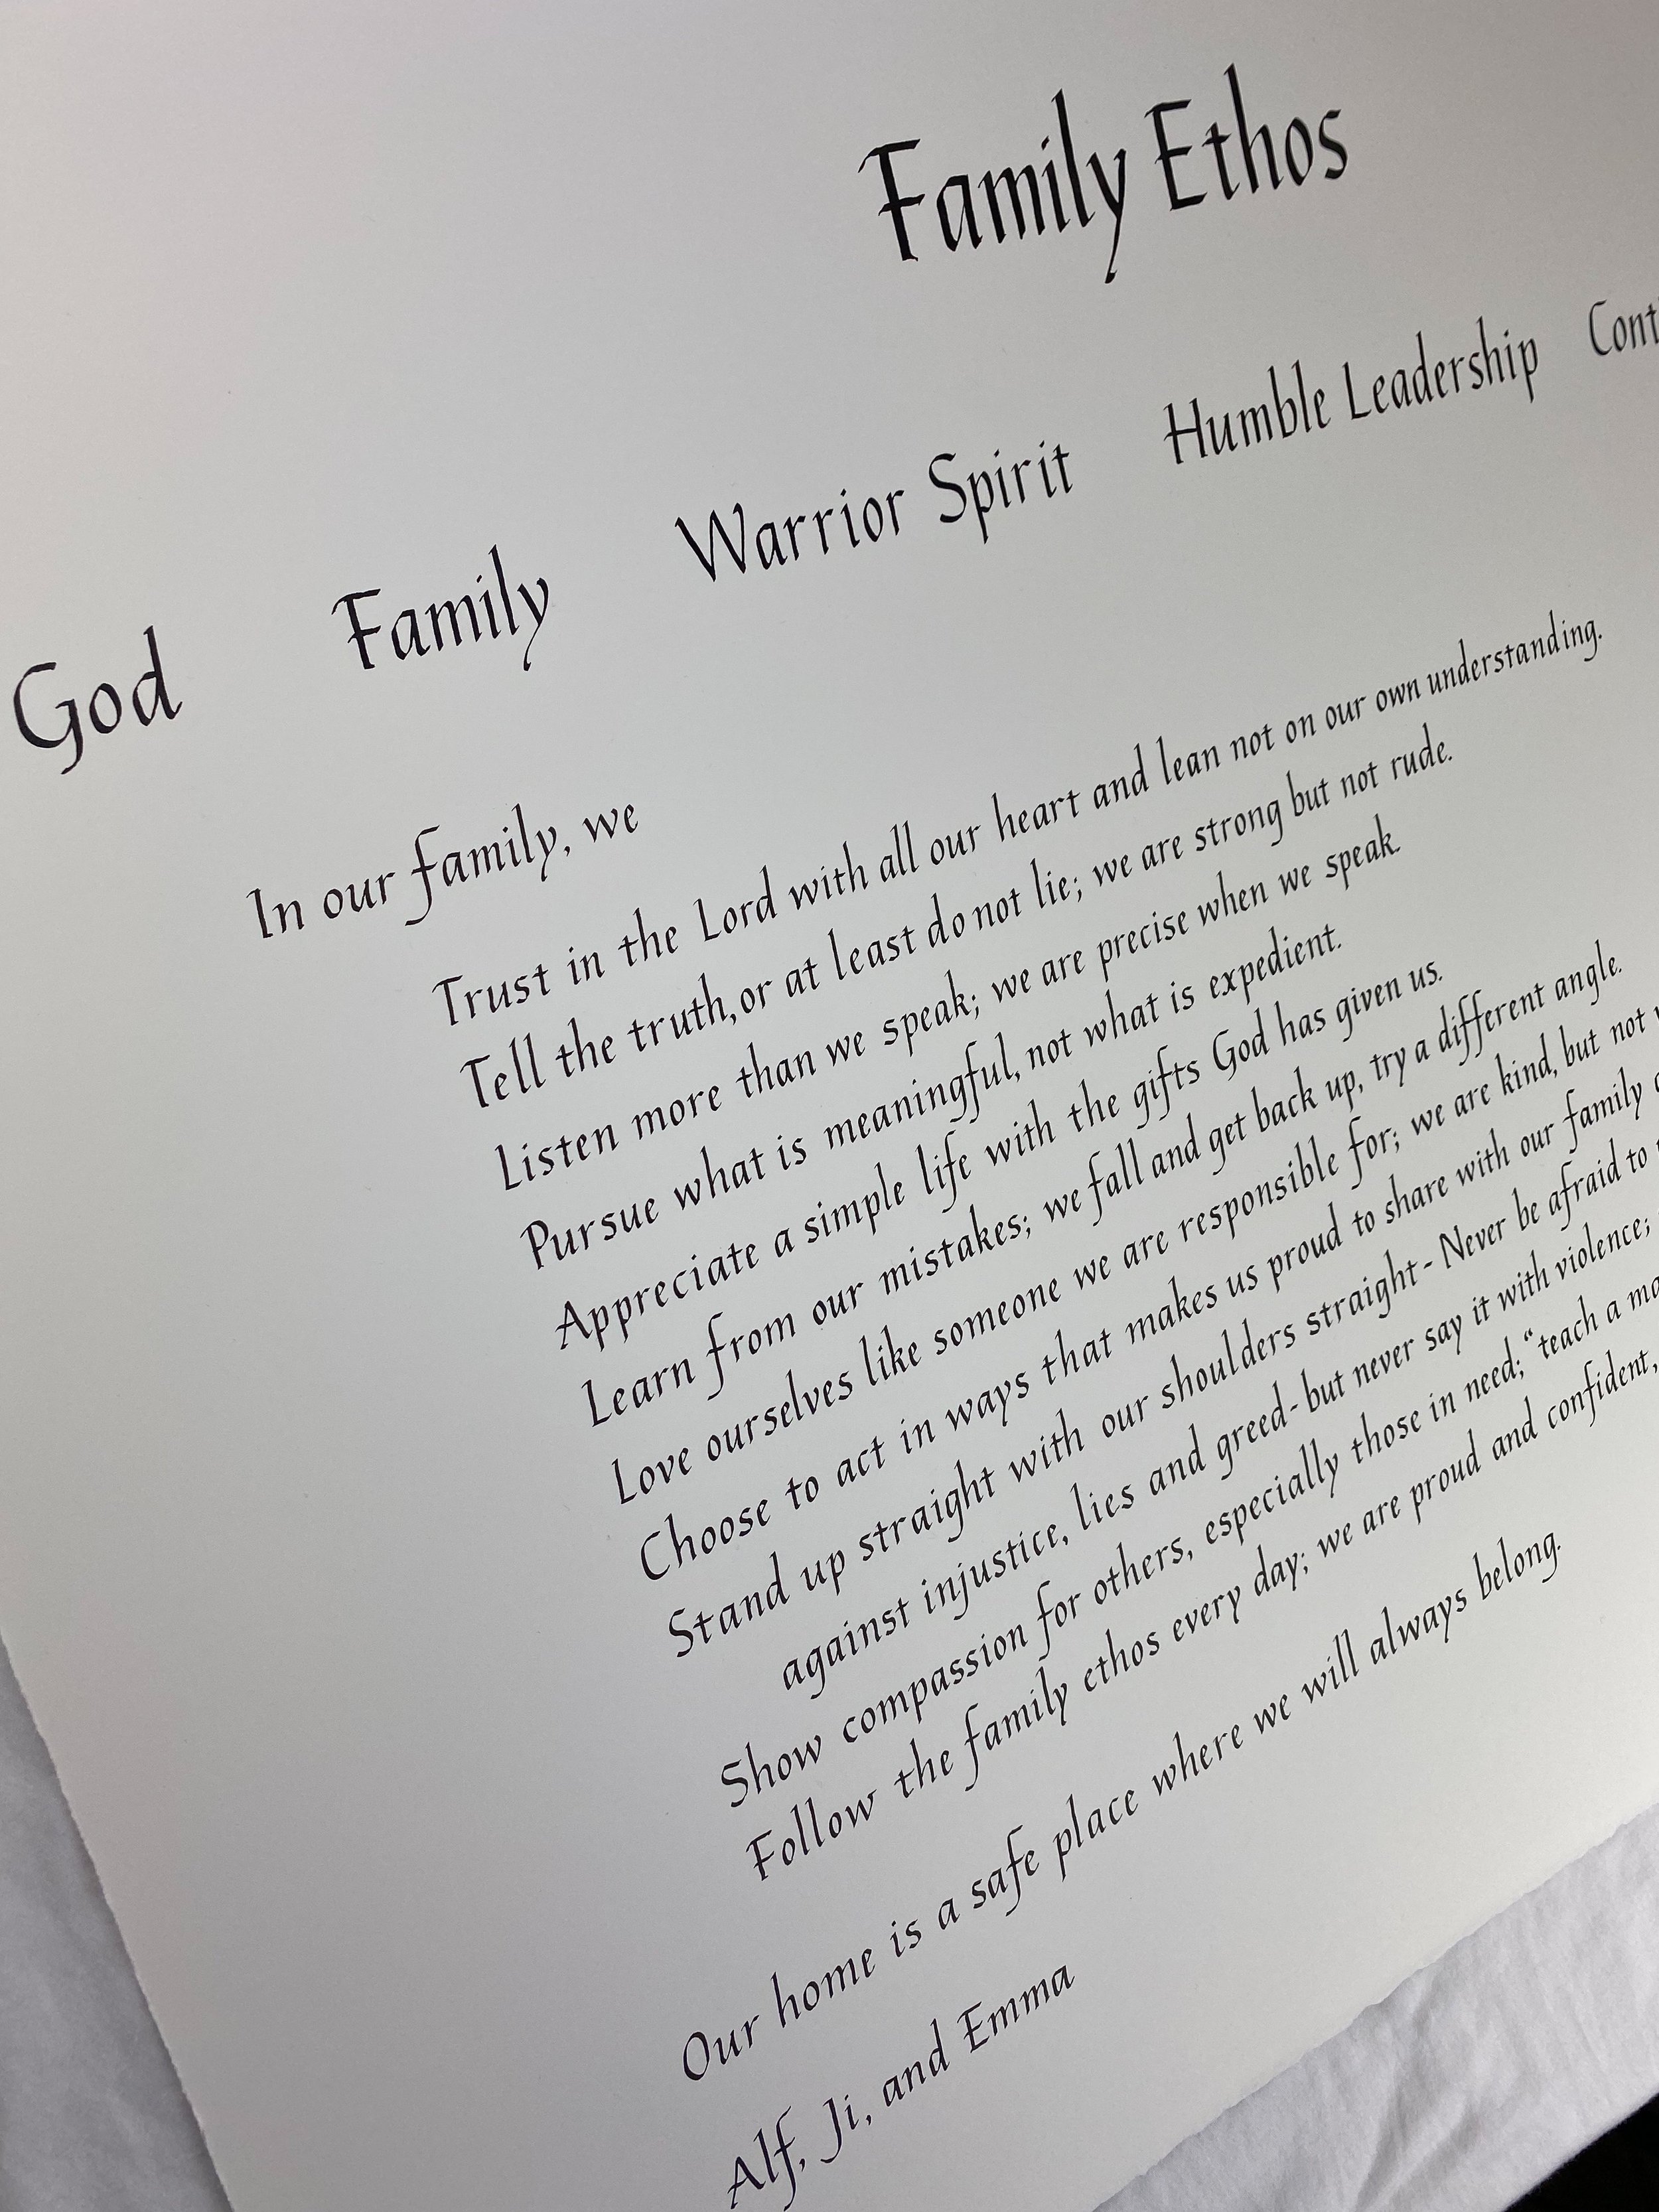 Family Ethos
God Family Warrior Spirit Humble Leadership
In our family, we
Trust in the Lord with all our heart and lean not on our own understanding.
Tell the truth, or at least do not lie; we are strong but not rude.
Listen more than we speak; we are precise when we speak.
Pursue what is meaningful, not what is expedient.
Appreciate a simple life with the gifts God has given us.
Learn from our mistakes; we fall and get back up, try a different angle.
Love ourselves like someone we are responsible for; we are kind, but not
Choose to act in ways that makes us proud to share with our family
Stand up straight with our shoulders straight- Never be afraid to
against injustice, lies and greed- but never say it with violence;
Show compassion for others, especially those in need; "teach a
Follow the family ethos every day; we are proud and confident,
Our home is a safe place where we will always belong.
Alf, Ji, and Emma